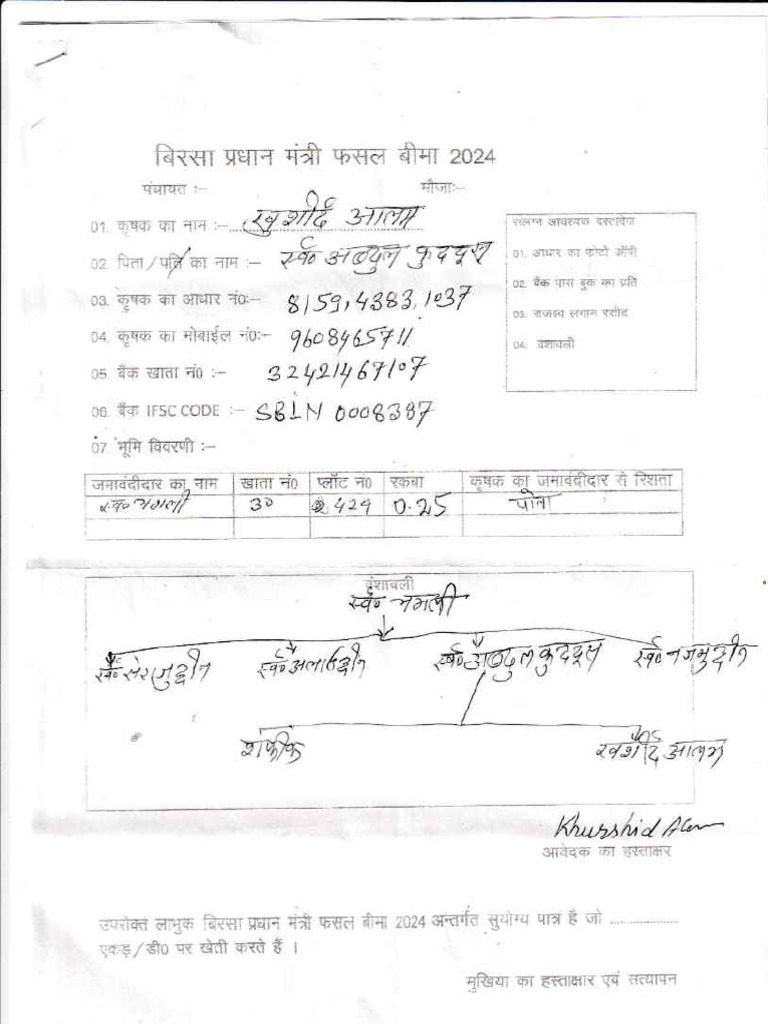 बिरसा प्रधान मंत्री फसल बीमा 2024
पंचायत :– मौजा:–
01. कृषक का नाम :– खुर्शीद आलम
02. पिता/पति का नाम :– स्व० अब्दुल कुद्दूस
03. कृषक का आधार नं0:– 8159,4383,1037
04. कृषक का मोबाईल नं0:– 9608465711
05. बैंक खाता नं0 :– 32421467107
06. बैंक IFSC CODE :– SBIN 0008387
07. भूमि विवरणी :–
सलग्न आवश्यक दस्तावेज
01. आधार का फोटो कॉपी
02. बैंक पास बुक का प्रति
03. राजस्व लगान रसीद
04. वंशावली
जमावंदीदार का नाम खाता नं0 प्लॉट नं0 रकबा कृषक का जमावंदीदार से रिश्ता
स्व० 30 2429 0.25 पोता
वंशावली
स्व०
स्व० सेराजुद्दीन स्व० अलाउद्दीन स्व० अब्दुल कुद्दूस स्व० नजमुद्दीन
शफीक खुर्शीद आलम
Khurshid Alam
आवेदक का हस्ताक्षर
उपरोक्त लाभुक बिरसा प्रधान मंत्री फसल बीमा 2024 अन्तर्गत सुयोग्य पात्र है जो ..............
एकड़/डी0 पर खेती करते हैं ।
मुखिया का हस्ताक्षार एवं सत्यापन